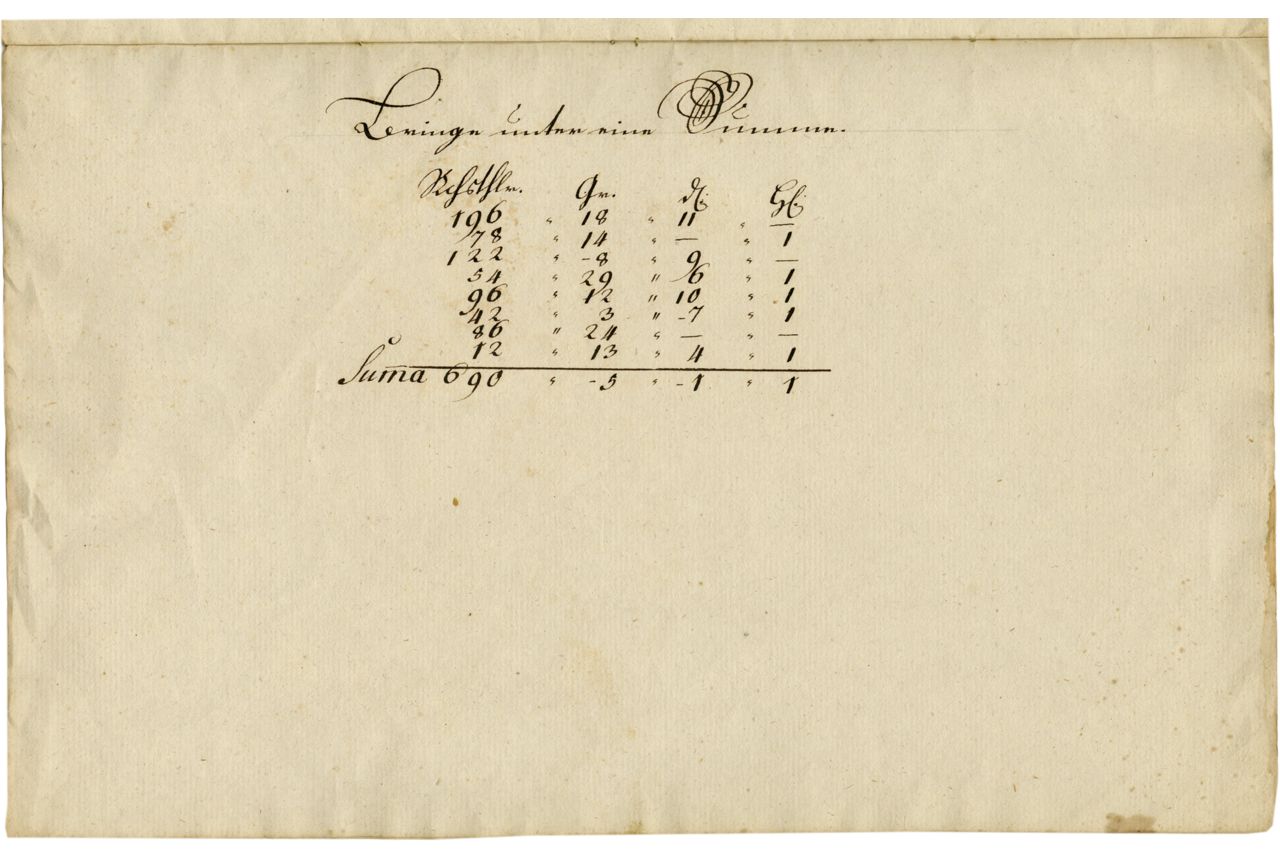 Bringe unter eine Summe.
Rchsthlr. Gr. ₰. Hl.
196 " 18 " 11 " —
78 " 14 " — " 1
122 " -8 " 9 " —
54 " 29 " 6 " 1
96 " 12 " 10 " 1
42 " 3 " -7 " 1
86 " 24 " — " —
12 " 13 " 4 " 1
Sum̅a 690 " -5 " -1 " 1